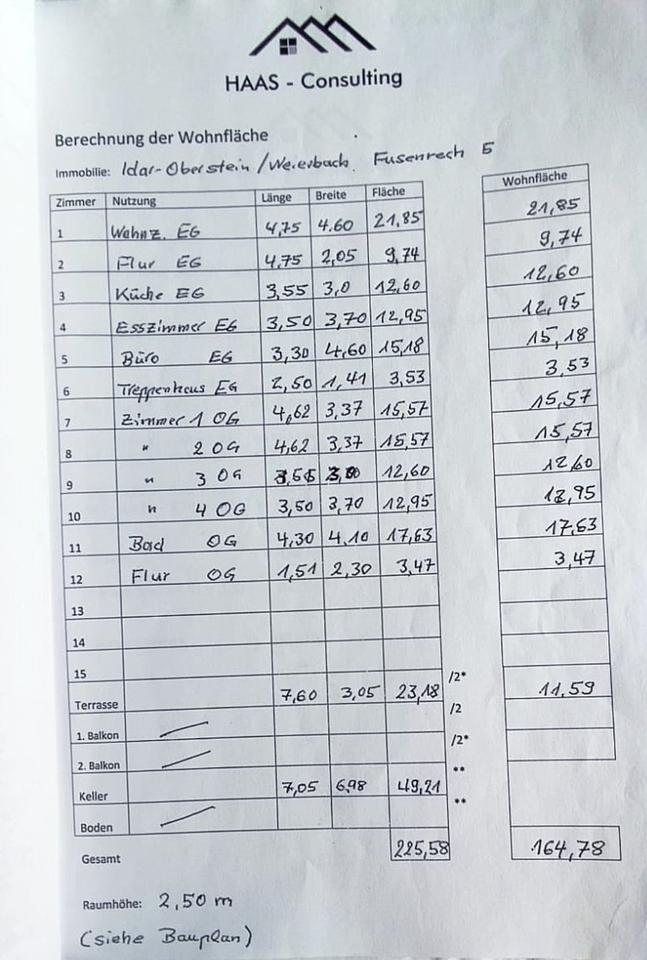 HAAS - Consulting
Berechnung der Wohnfläche
Immobilie: Idar-Oberstein/Weierbach. Fusenrech 5
Zimmer Nutzung Länge Breite Fläche Wohnfläche
1 Wohnz. EG 4,75 4.60 21,85 21,85
2 Flur EG 4,75 2,05 9,74 9,74
3 Küche EG 3,55 3,0 12,60 12,60
4 Esszimmer EG 3,50 3,70 12,95 12,95
5 Büro EG 3,30 4,60 15,18 15,18
6 Treppenhaus EG 2,50 1,41 3,53 3,53
7 Zimmer 1 OG 4,62 3,37 15,57 15,57
8 " 2 OG 4,62 3,37 15,57 15,57
9 " 3 OG 3,55 12,60 12,60
10 " 4 OG 3,50 3,70 12,95 12,95
11 Bad OG 4,30 4,10 17,63 17,63
12 Flur OG 1,51 2,30 3,47 3,47
13
14
15
Terrasse 7,60 3,05 23,18 /2* 11,59
1. Balkon /2
2. Balkon /2*
Keller 7,05 6,98 49,21 **
Boden **
Gesamt 225,58 164,78
Raumhöhe: 2,50 m
(siehe Bauplan)